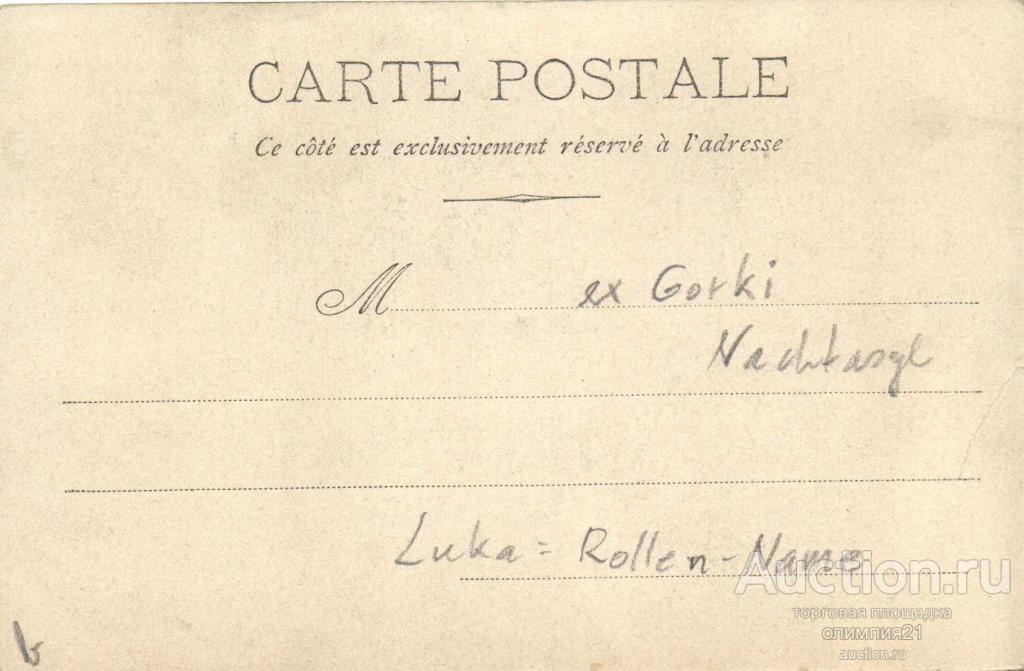 CARTE POSTALE
Ce côté est exclusivement réservé à l'adresse
M
ex Gorki
Nachtasyl
Luka = Rollen-Name
Auction.ru
торговая площадка
олимпия21
auction.ru